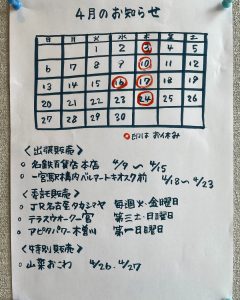 4月のお知らせ
日 月 火 水 木 金 土
1 2 3 4 5
6 7 8 9 10 11 12
13 14 15 16 17 18 19
20 21 22 23 24 25 26
27 28 29 30
○印は お休み
<出張販売>
○ 名鉄百貨店 本店 4/9 〜 4/15
○ 一宮駅構内バルマートキオスク前 4/18〜4/23
<委託販売>
○ JR名古屋タカシマヤ 毎週火・金曜日
○ テラスウォーク一宮 第三土・日曜日
○ アピタパワー木曽川 第一日曜日
<特別販売>
○ 山菜おこわ 4/26、4/27